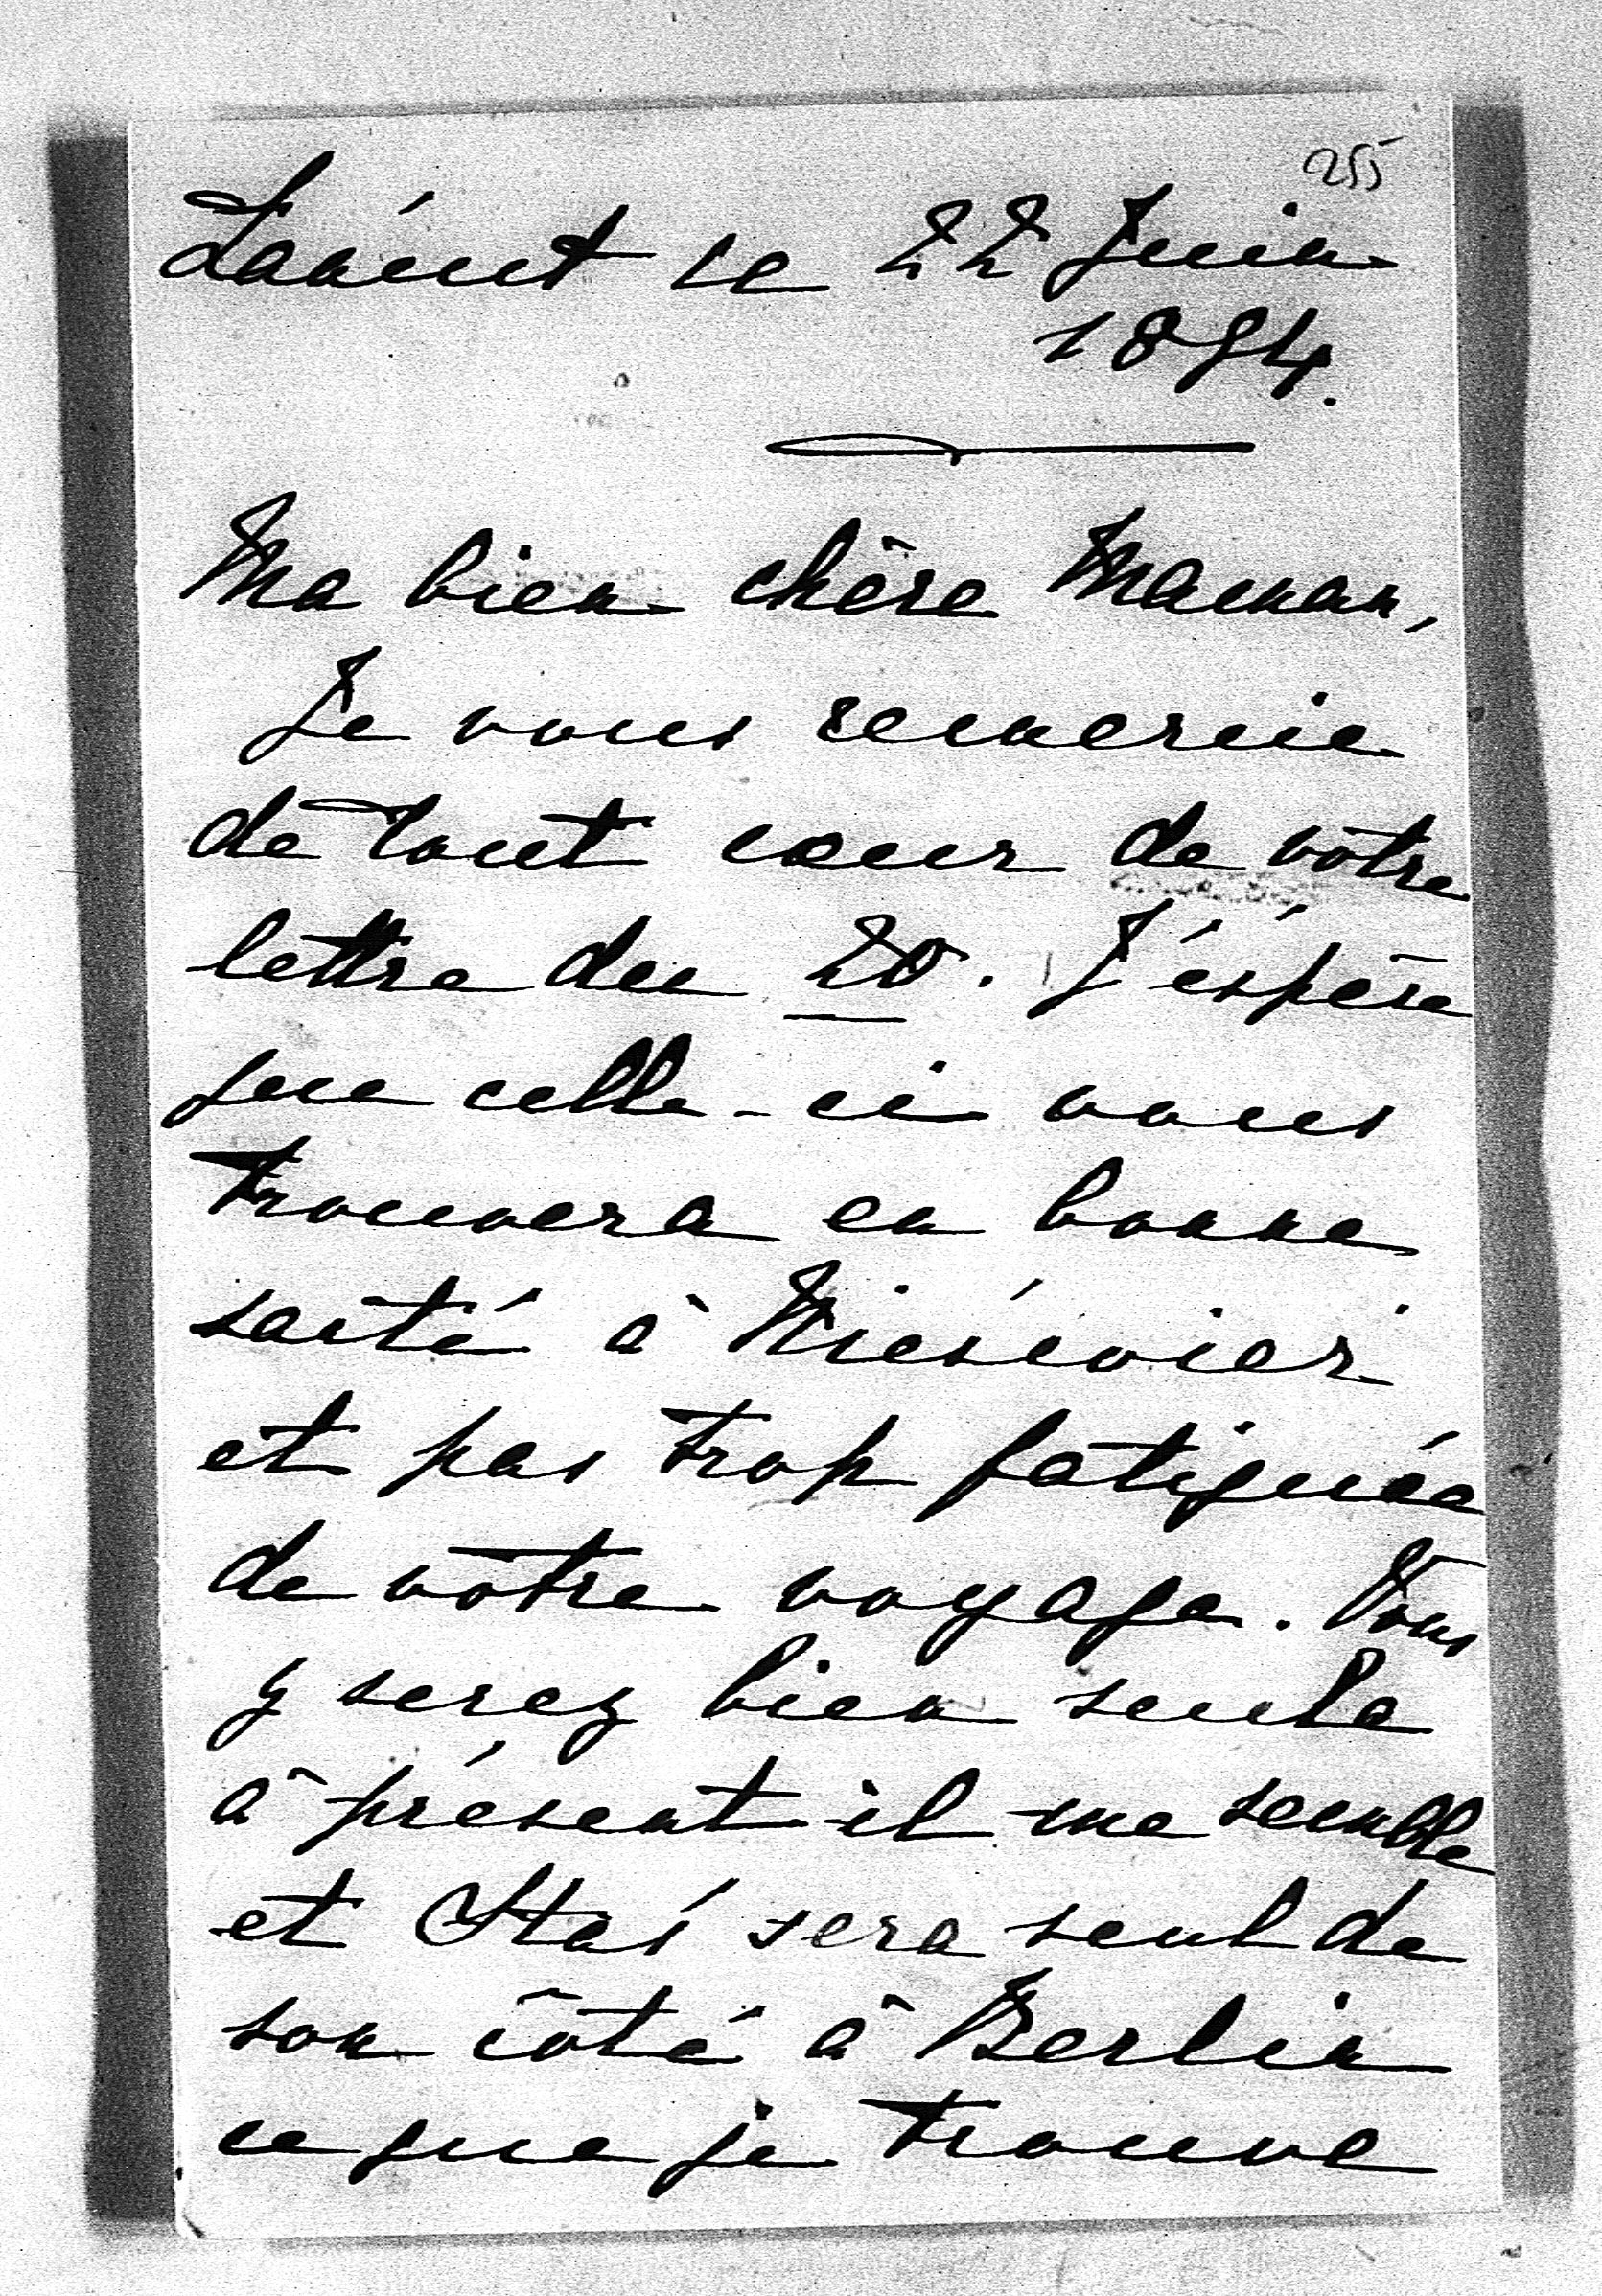 255
Łańcut le 22 Juin
1894.
Ma bien chère Maman,
Je vous remercie
de tout coeur de vôtre
lettre du 20. J'éspère
que celle-ci vous
trouvera en bonne
santé à Nieśwież
et pas trop fatiguée
de vôtre voyage. Vous
y serez bien seule
à présent il me semble
et Staś sera seul de
son côté à Berlin
ce que je trouve